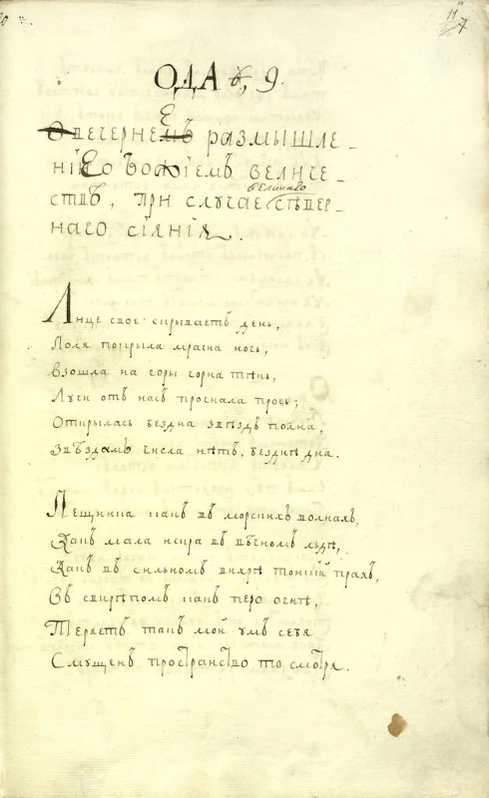 ОДА 9.
Вечернее размышле-
ніе о Божіемъ величе-
ствѣ, при случае великаго сѣвер-
наго сіянія.
Лице свое скрываетъ день,
Поля покрыла мрачна ночь,
Взошла на горы чорна тѣнь,
Лучи отъ насъ прогнала прочь;
Открылась бездна звѣздъ полна,
Звѣздамъ числа нѣтъ, безднѣ дна.
Песчинка какъ въ морскихъ волнахъ,
Какъ мала искра въ вѣчномъ льдѣ,
Какъ въ сильномъ вихрѣ тонкій прахъ,
Въ свирѣпомъ какъ перо огнѣ,
Теряетъ такъ мой умъ себя
Смущенъ пространство то смотря.